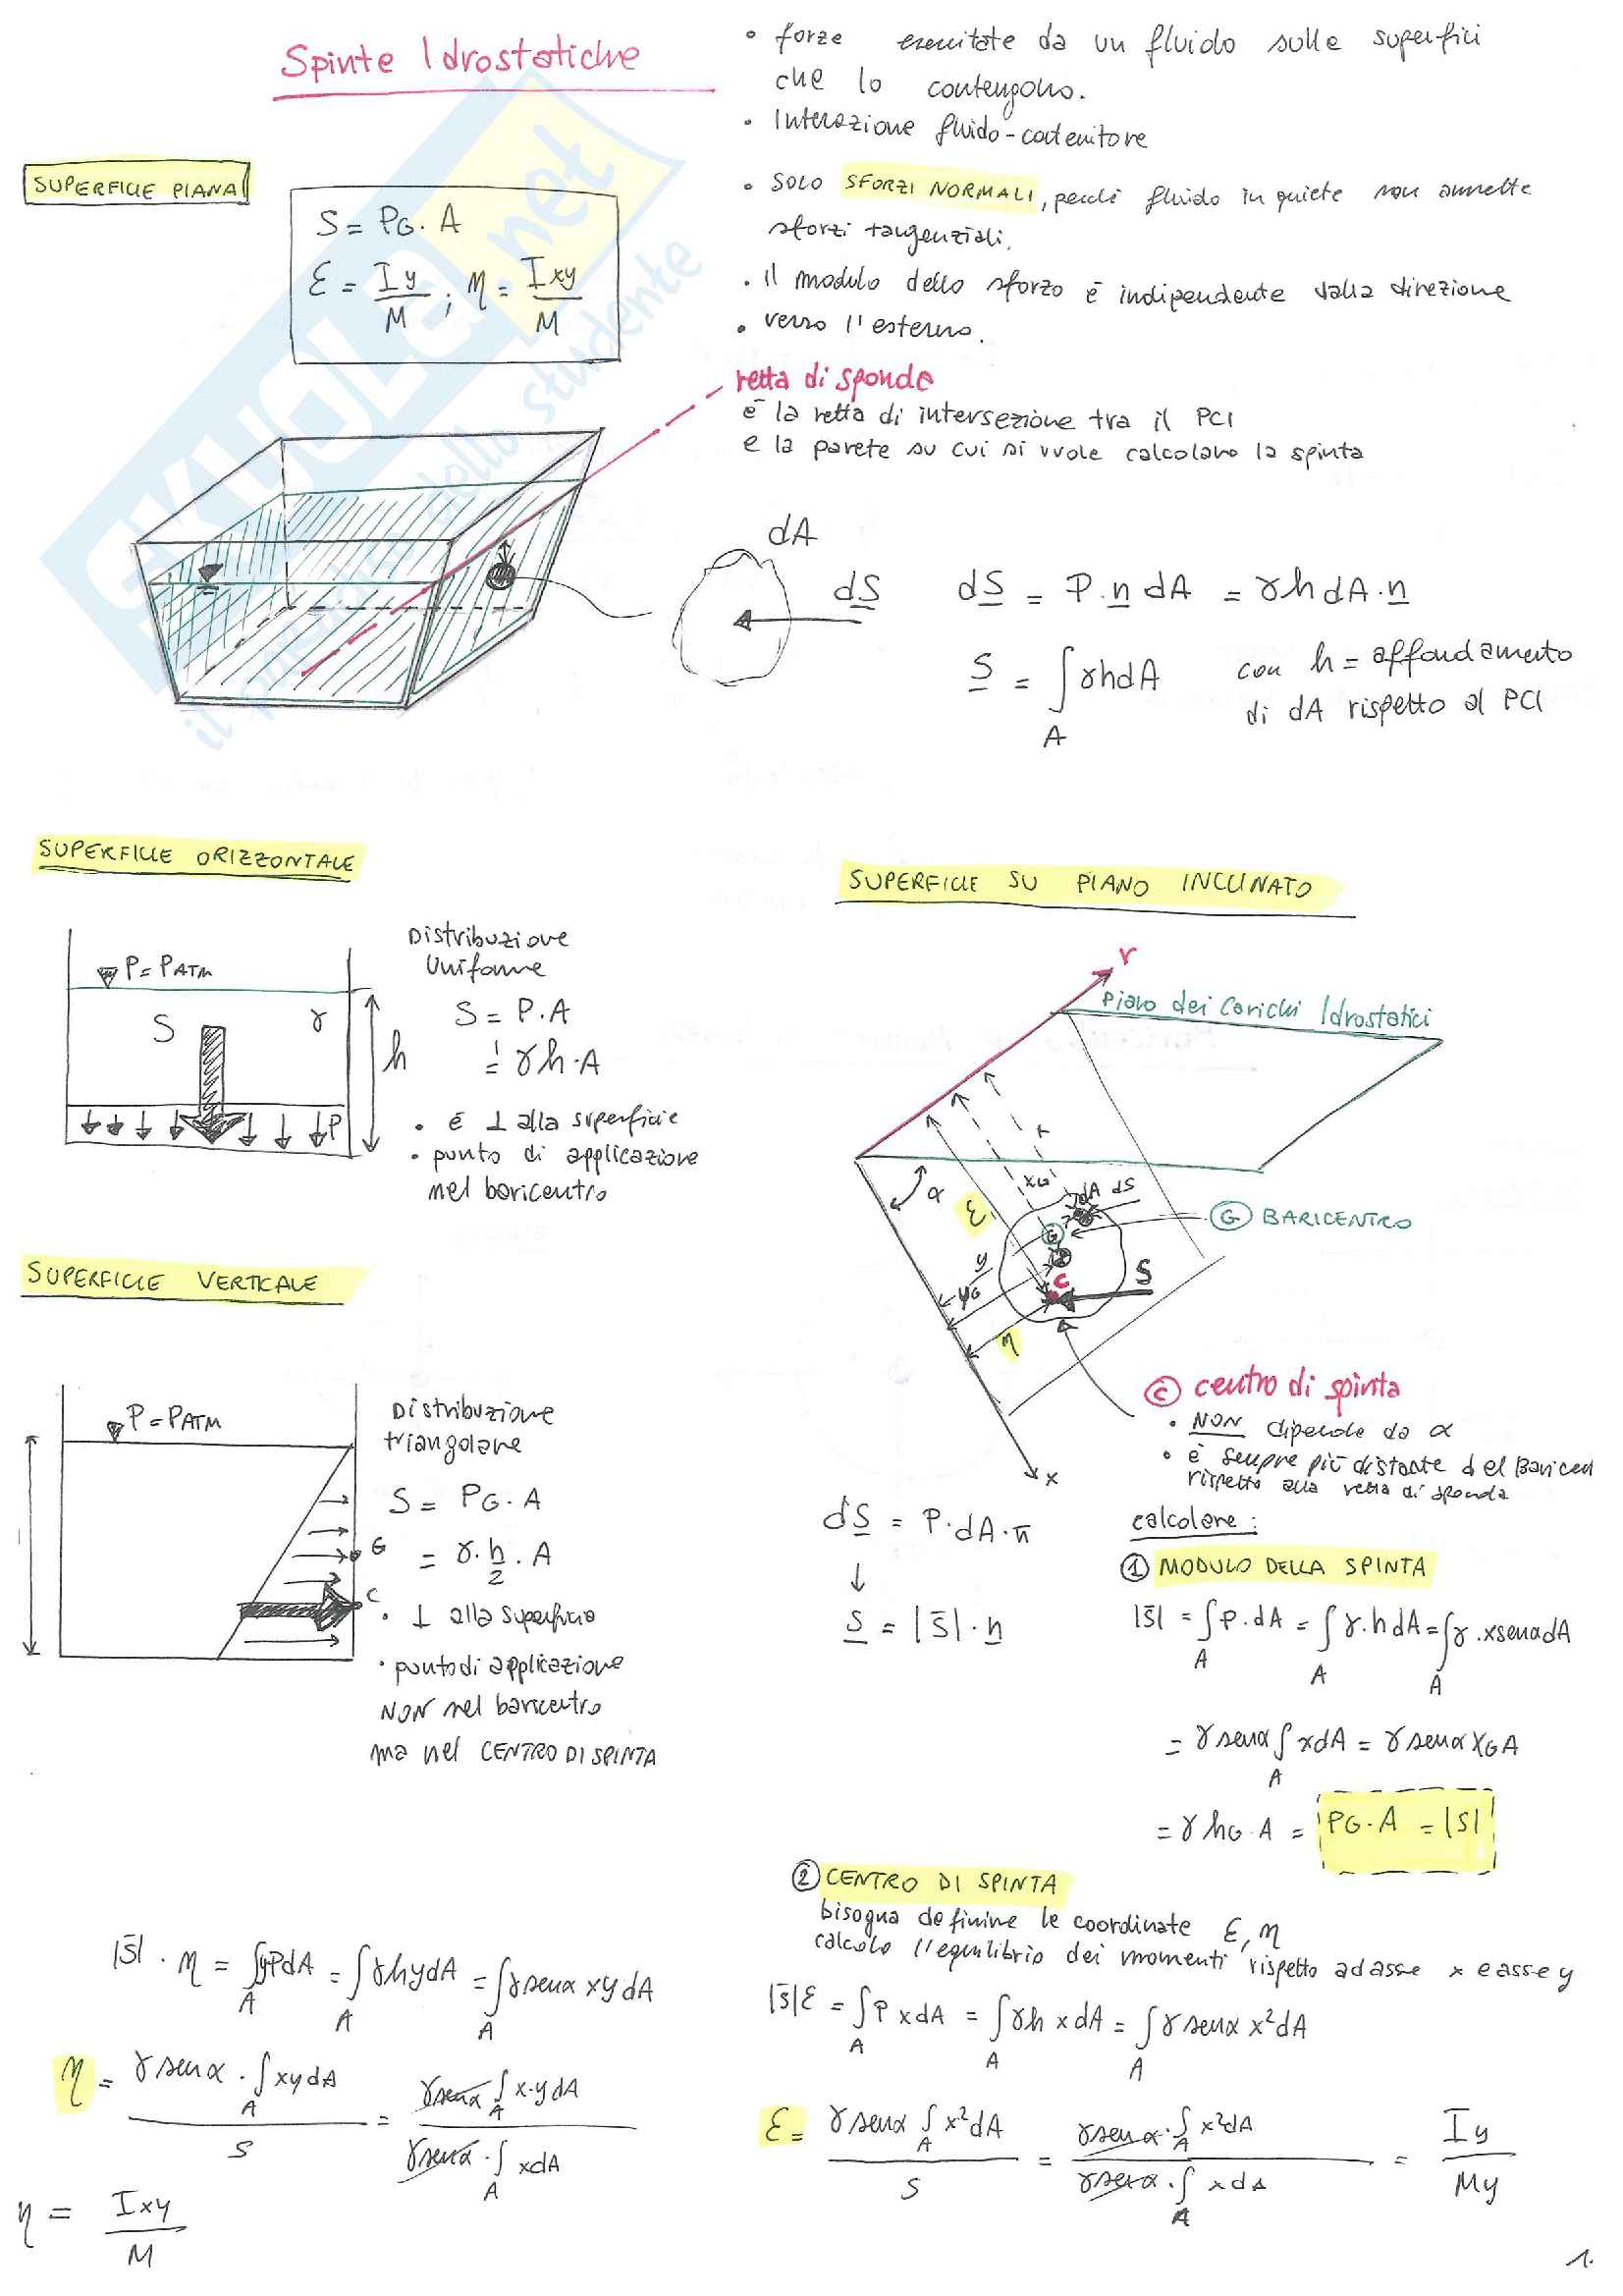 Spinte Idrostatiche
• forze esercitate da un fluido sulle superfici
che lo contengono.
• Interazione fluido-contenitore
• SOLO SFORZI NORMALI, perché fluido in quiete non ammette
sforzi tangenziali.
• il modulo dello sforzo è indipendente dalla direzione
• verso l'esterno.
SUPERFICIE PIANA
S = PG · A
Ɛ = Iy/M ; η = Ixy/M
retta di sponda
è la retta di intersezione tra il PCI
e la parete su cui si vuole calcolare la spinta
dA
dS
dS = P · n dA = γh dA · n
S = ∫A γhdA con h = affondamento
di dA rispetto al PCI
SKUOLA.net
il paradiso dello studente
SUPERFICIE ORIZZONTALE
P = PATM
S
γ
h
P
Distribuzione
Uniforme
S = P·A
= γh·A
• è ⊥ alla superficie
• punto di applicazione
nel baricentro
SUPERFICIE VERTICALE
P = PATM
G
C
Distribuzione
triangolare
S = PG · A
= γ · h/2 · A
• ⊥ alla superficie
• punto di applicazione
NON nel baricentro
ma nel CENTRO DI SPINTA
SUPERFICIE SU PIANO INCLINATO
r
Piano dei Carichi Idrostatici
α
Ɛ
x
xG
dA dS
G
G BARICENTRO
y
yG
C
S
η
x
C centro di spinta
• NON dipende da α
• è sempre più distante del Baricen
rispetto alla retta di sponda
dS = P · dA · n
↓
S = |S| · n
calcolare:
1 MODULO DELLA SPINTA
|S| = ∫A P · dA = ∫A γ · h dA = ∫A γ · x senα dA
= γ senα ∫A x dA = γ senα xG A
= γ hG · A = PG · A = |S|
2 CENTRO DI SPINTA
bisogna definire le coordinate Ɛ, η
calcolo l'equilibrio dei momenti rispetto ad asse x e asse y
|S|Ɛ = ∫A P x dA = ∫A γh x dA = ∫A γ senα x² dA
Ɛ = γ senα ∫A x² dA / S = γ senα · ∫A x² dA / γ senα · ∫A x dA = Iy / My
|S| · η = ∫A yPdA = ∫A γhydA = ∫A γ senα xy dA
η = γ senα · ∫A xy dA / S = γ senα ∫A x·y dA / γ senα · ∫A x dA
η = Ixy / M
1.